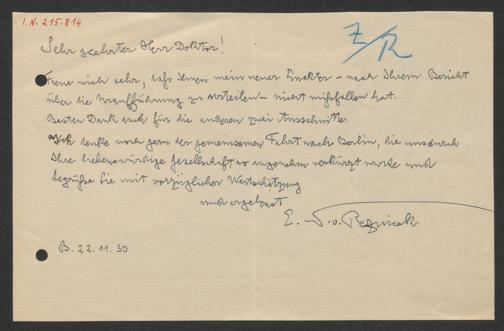 I.N. 215.814
Z/R
Sehr geehrter Herr Doktor!
Freue mich sehr, daß Ihnen mein neuer Einakter – nach Ihrem Bericht
über die Uraufführung zu urteilen – nicht mißfallen hat.
Besten Dank auch für die anderen zwei Ausschnitte.
Ich denke noch gern der gemeinsamen Fahrt nach Berlin, die uns durch
Ihre liebenswürdige Gesellschaft so angenehm verkürzt wurde und
begrüße Sie mit vorzüglicher Wertschätzung
und ergebenst
E. N. v. Reznicek
B. 22.11.30